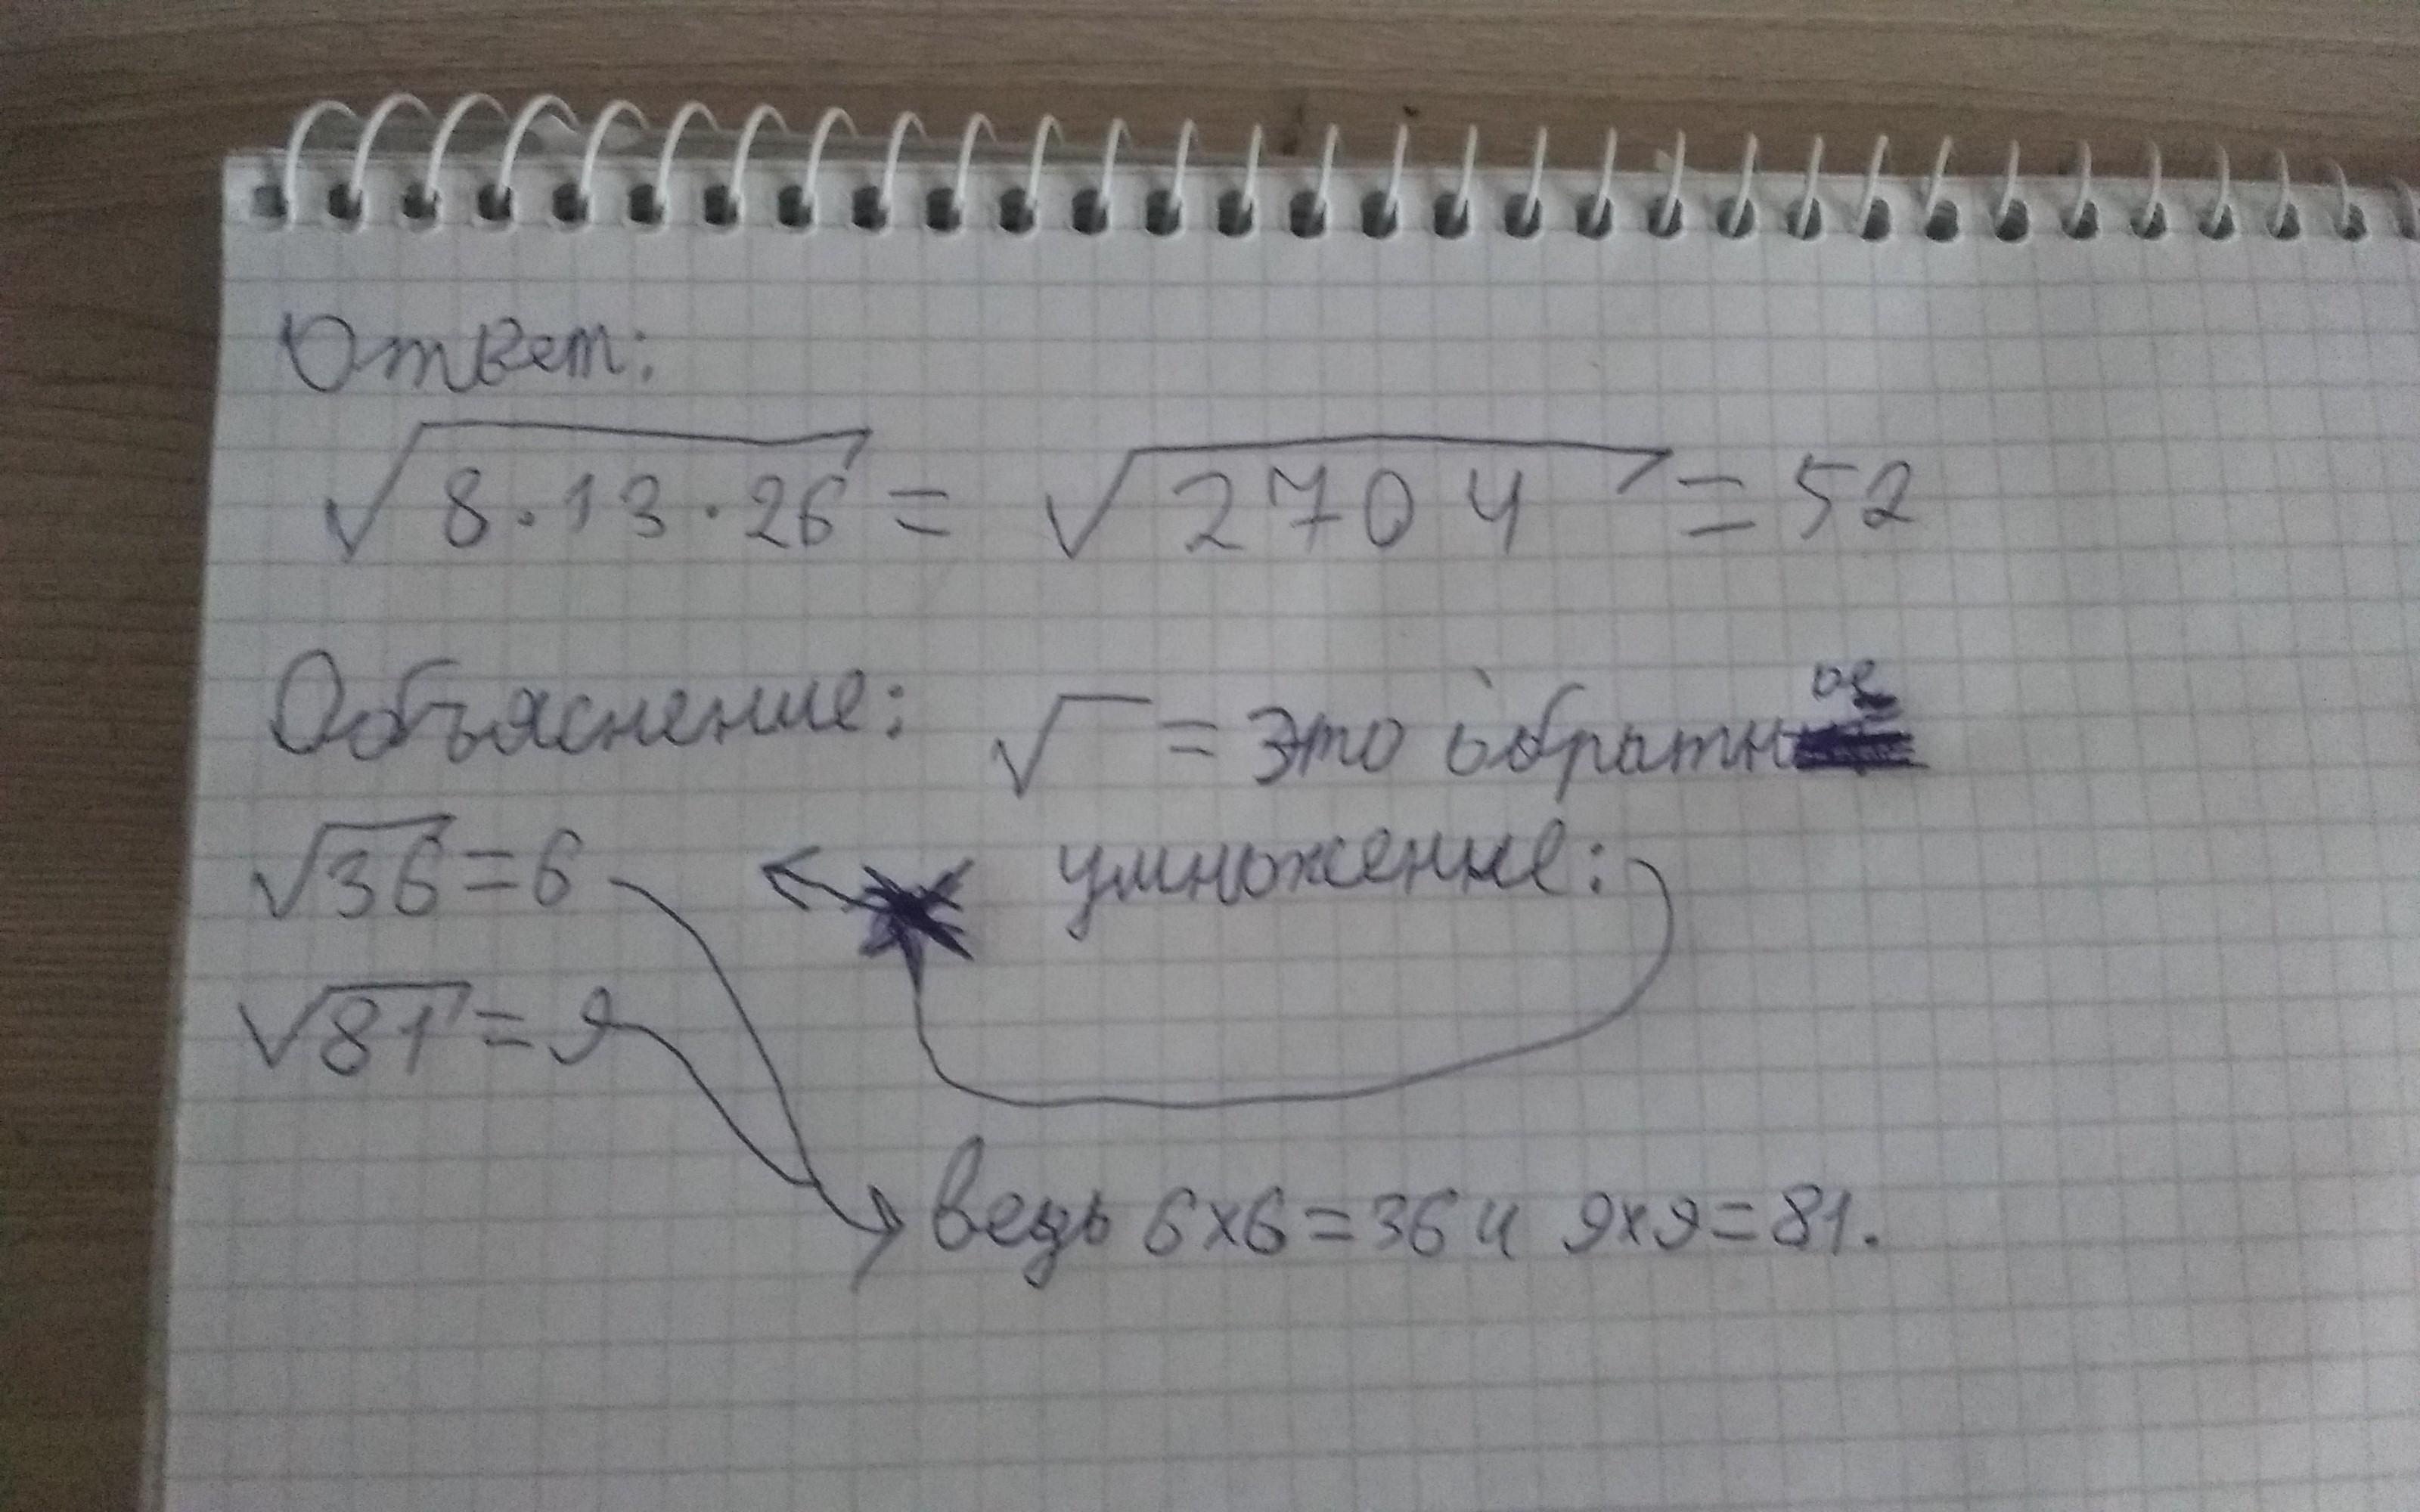 Ответ:
√8·13·26 = √2704 = 52
Объяснение: √ = это обратное
умножение:
√36=6
√81=9
ведь 6x6=36 и 9x9=81.